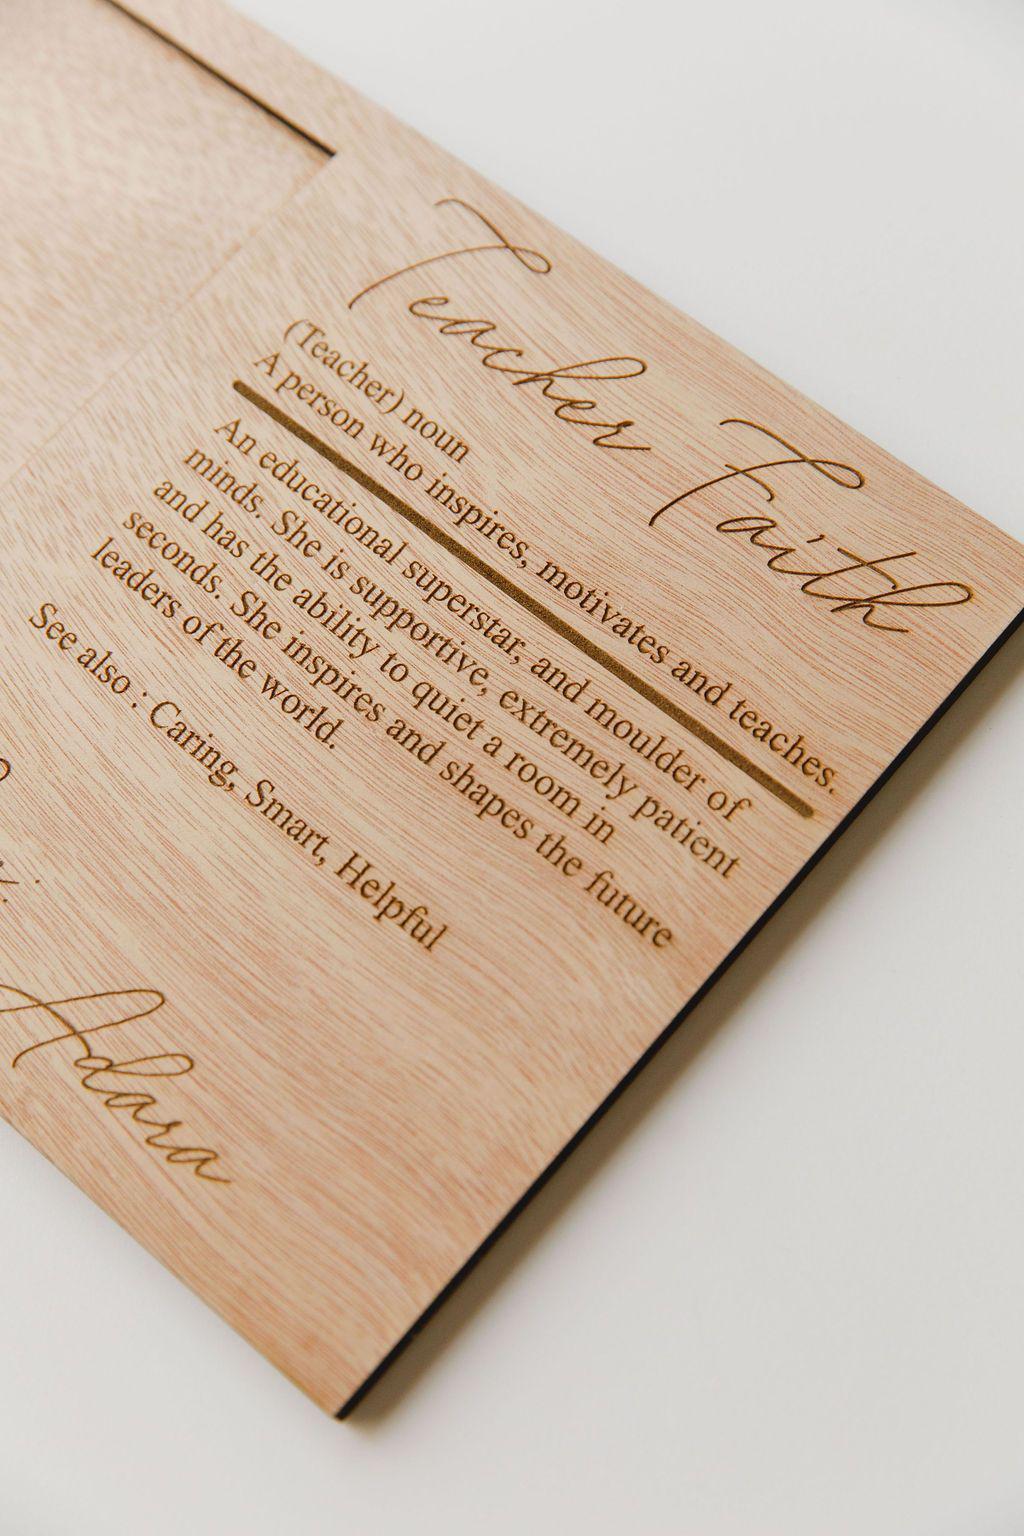 Teacher Faith
(Teacher) noun
A person who inspires, motivates and teaches.
An educational superstar, and moulder of
minds. She is supportive, extremely patient
and has the ability to quiet a room in
seconds. She inspires and shapes the future
leaders of the world.
See also : Caring, Smart, Helpful
Adara